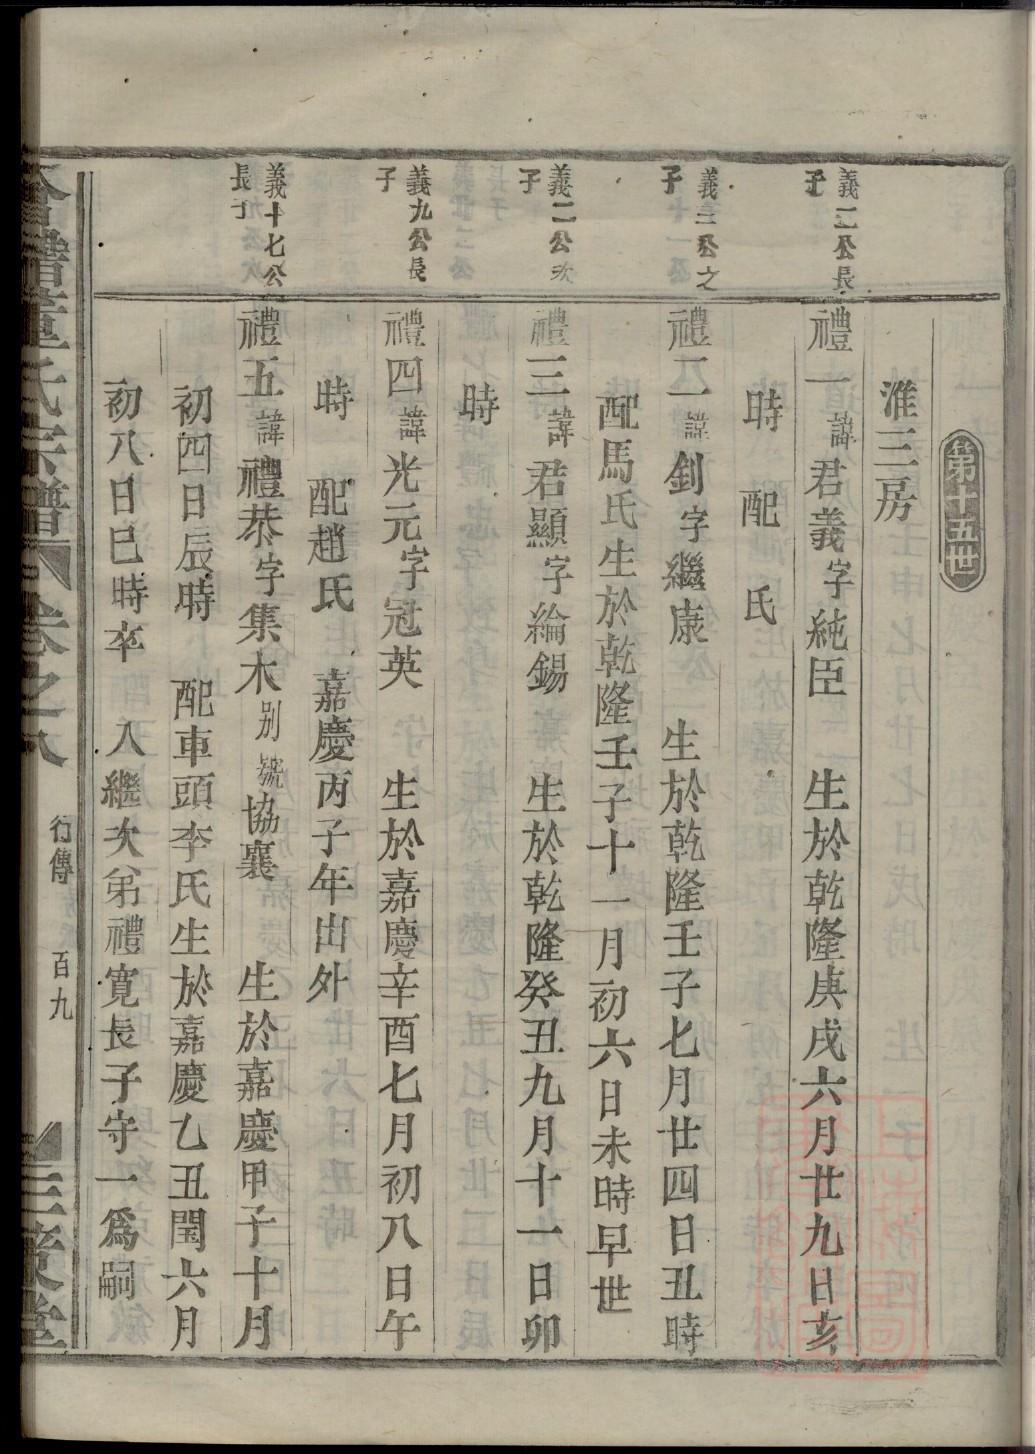 第十五世
淮三房
義二公長
子
禮一諱君義字純臣 生於乾隆庚戌六月廿九日亥
時 配 氏
義三公之
子
禮二諱釗字繼康 生於乾隆壬子七月廿四日丑時
配馬氏生於乾隆壬子十一月初六日未時早世
義二公次
子
禮三諱君顯字綸錫 生於乾隆癸丑九月十一日卯
時
義九公長
子
禮四諱光元字冠英 生於嘉慶辛酉七月初八日午
時 配趙氏 嘉慶丙子年出外
義十七公
長子
禮五諱禮恭字集木别號協襄 生於嘉慶甲子十月
初四日辰時 配車頭李氏生於嘉慶乙丑閏六月
初八日巳時卒 入繼次弟禮寬長子守一爲嗣
氏宗譜 卷之八 行傳 百九 堂